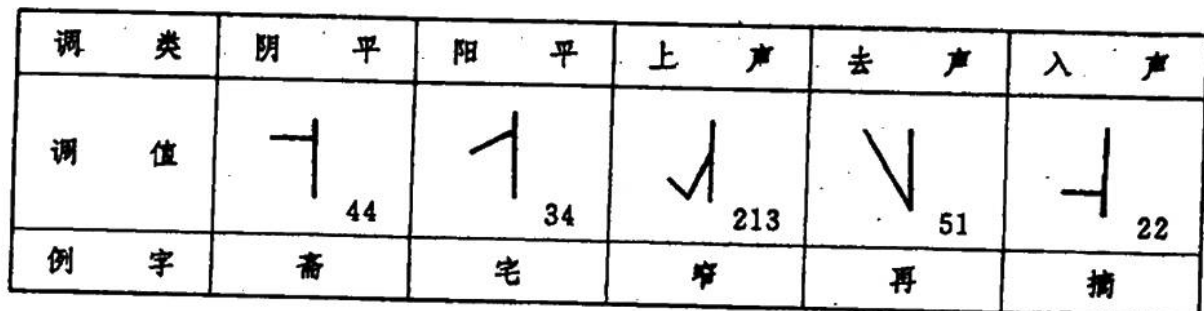 调 类 阴 平 阳 平 上 声 去 声 入 声
调 值 44 34 213 51 22
例 字 斋 宅 窄 再 摘